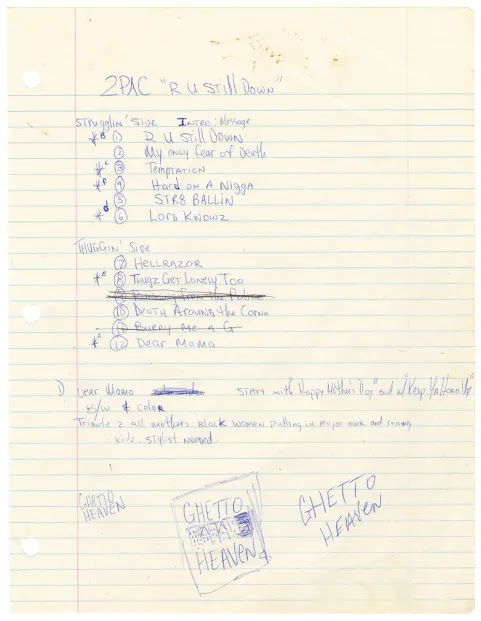 2PAC "R U Still Down"
Strugglin' Side Intro: Message
*B ① R U Still Down
② My only fear of Death
*C ③ Temptation
*F ④ Hard on A Nigga
⑤ STR8 BALLIN
*d ⑥ Lord Knowz
Thuggin' Side
⑦ HELLRAZOR
*E ⑧ Thugz Get Lonely Too
⑨ Running from the Police
⑩ Death Around the Corna
⑪ Burry Me A G
*A ⑫ Dear Mama
1) Dear Mama START with "Happy Mother's Day" end w/ "Keep Ya Head Up"
B/w & color
Tribute 2 all mothers Black women putting in major work and raising
kids. stylist needed.
GHETTO
HEAVEN
GHETTO
HEAVEN
GHETTO
HEAVEN